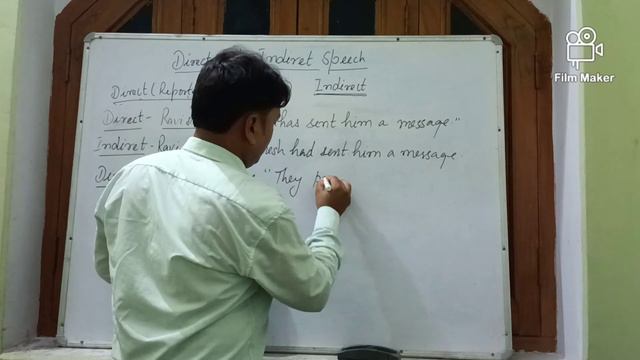 Direct Indiret Speech
Direct (Report Indirect
Direct - Ravi has sent him a message."
Indiret - Ravi had sent him a message.
"They
Film Maker